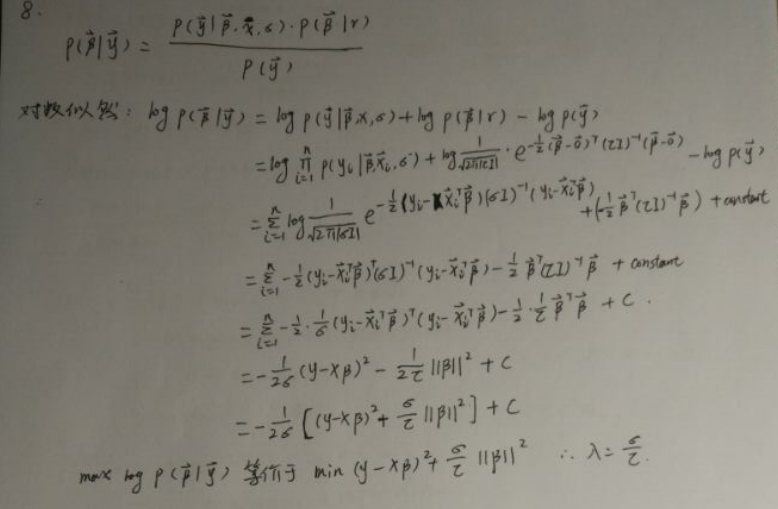 8.
p(β⃗|y⃗) = p(y⃗|β⃗,x⃗,σ)·p(β⃗|τ) / p(y⃗)
对数似然: log p(β⃗|y⃗) = log p(y⃗|β⃗,x,σ) + log p(β⃗|τ) - log p(y⃗)
= log ∏_{i=1}^{n} p(y_i|β⃗,x⃗_i,σ) + log 1/√(2π|τI|) · e^{-1/2(β⃗-0⃗)^T(τI)^{-1}(β⃗-0⃗)} - log p(y⃗)
= Σ_{i=1}^{n} log 1/√(2π|σI|) e^{-1/2(y_i-x⃗_i^Tβ⃗)(σI)^{-1}(y_i-x⃗_i^Tβ⃗)} + (-1/2 β⃗^T(τI)^{-1}β⃗) + constant
= Σ_{i=1}^{n} -1/2(y_i-x⃗_i^Tβ⃗)^T(σI)^{-1}(y_i-x⃗_i^Tβ⃗) - 1/2 β⃗^T(τI)^{-1}β⃗ + constant
= Σ_{i=1}^{n} -1/2·1/σ(y_i-x⃗_i^Tβ⃗)^T(y_i-x⃗_i^Tβ⃗) - 1/2·1/τ β⃗^Tβ⃗ + C.
= -1/2σ (y-xβ)² - 1/2τ ||β||² + C
= -1/2σ [(y-xβ)² + σ/τ ||β||²] + C
max log p(β⃗|y⃗) 等价于 min (y-xβ)² + σ/τ ||β||² ∴ λ = σ/τ.